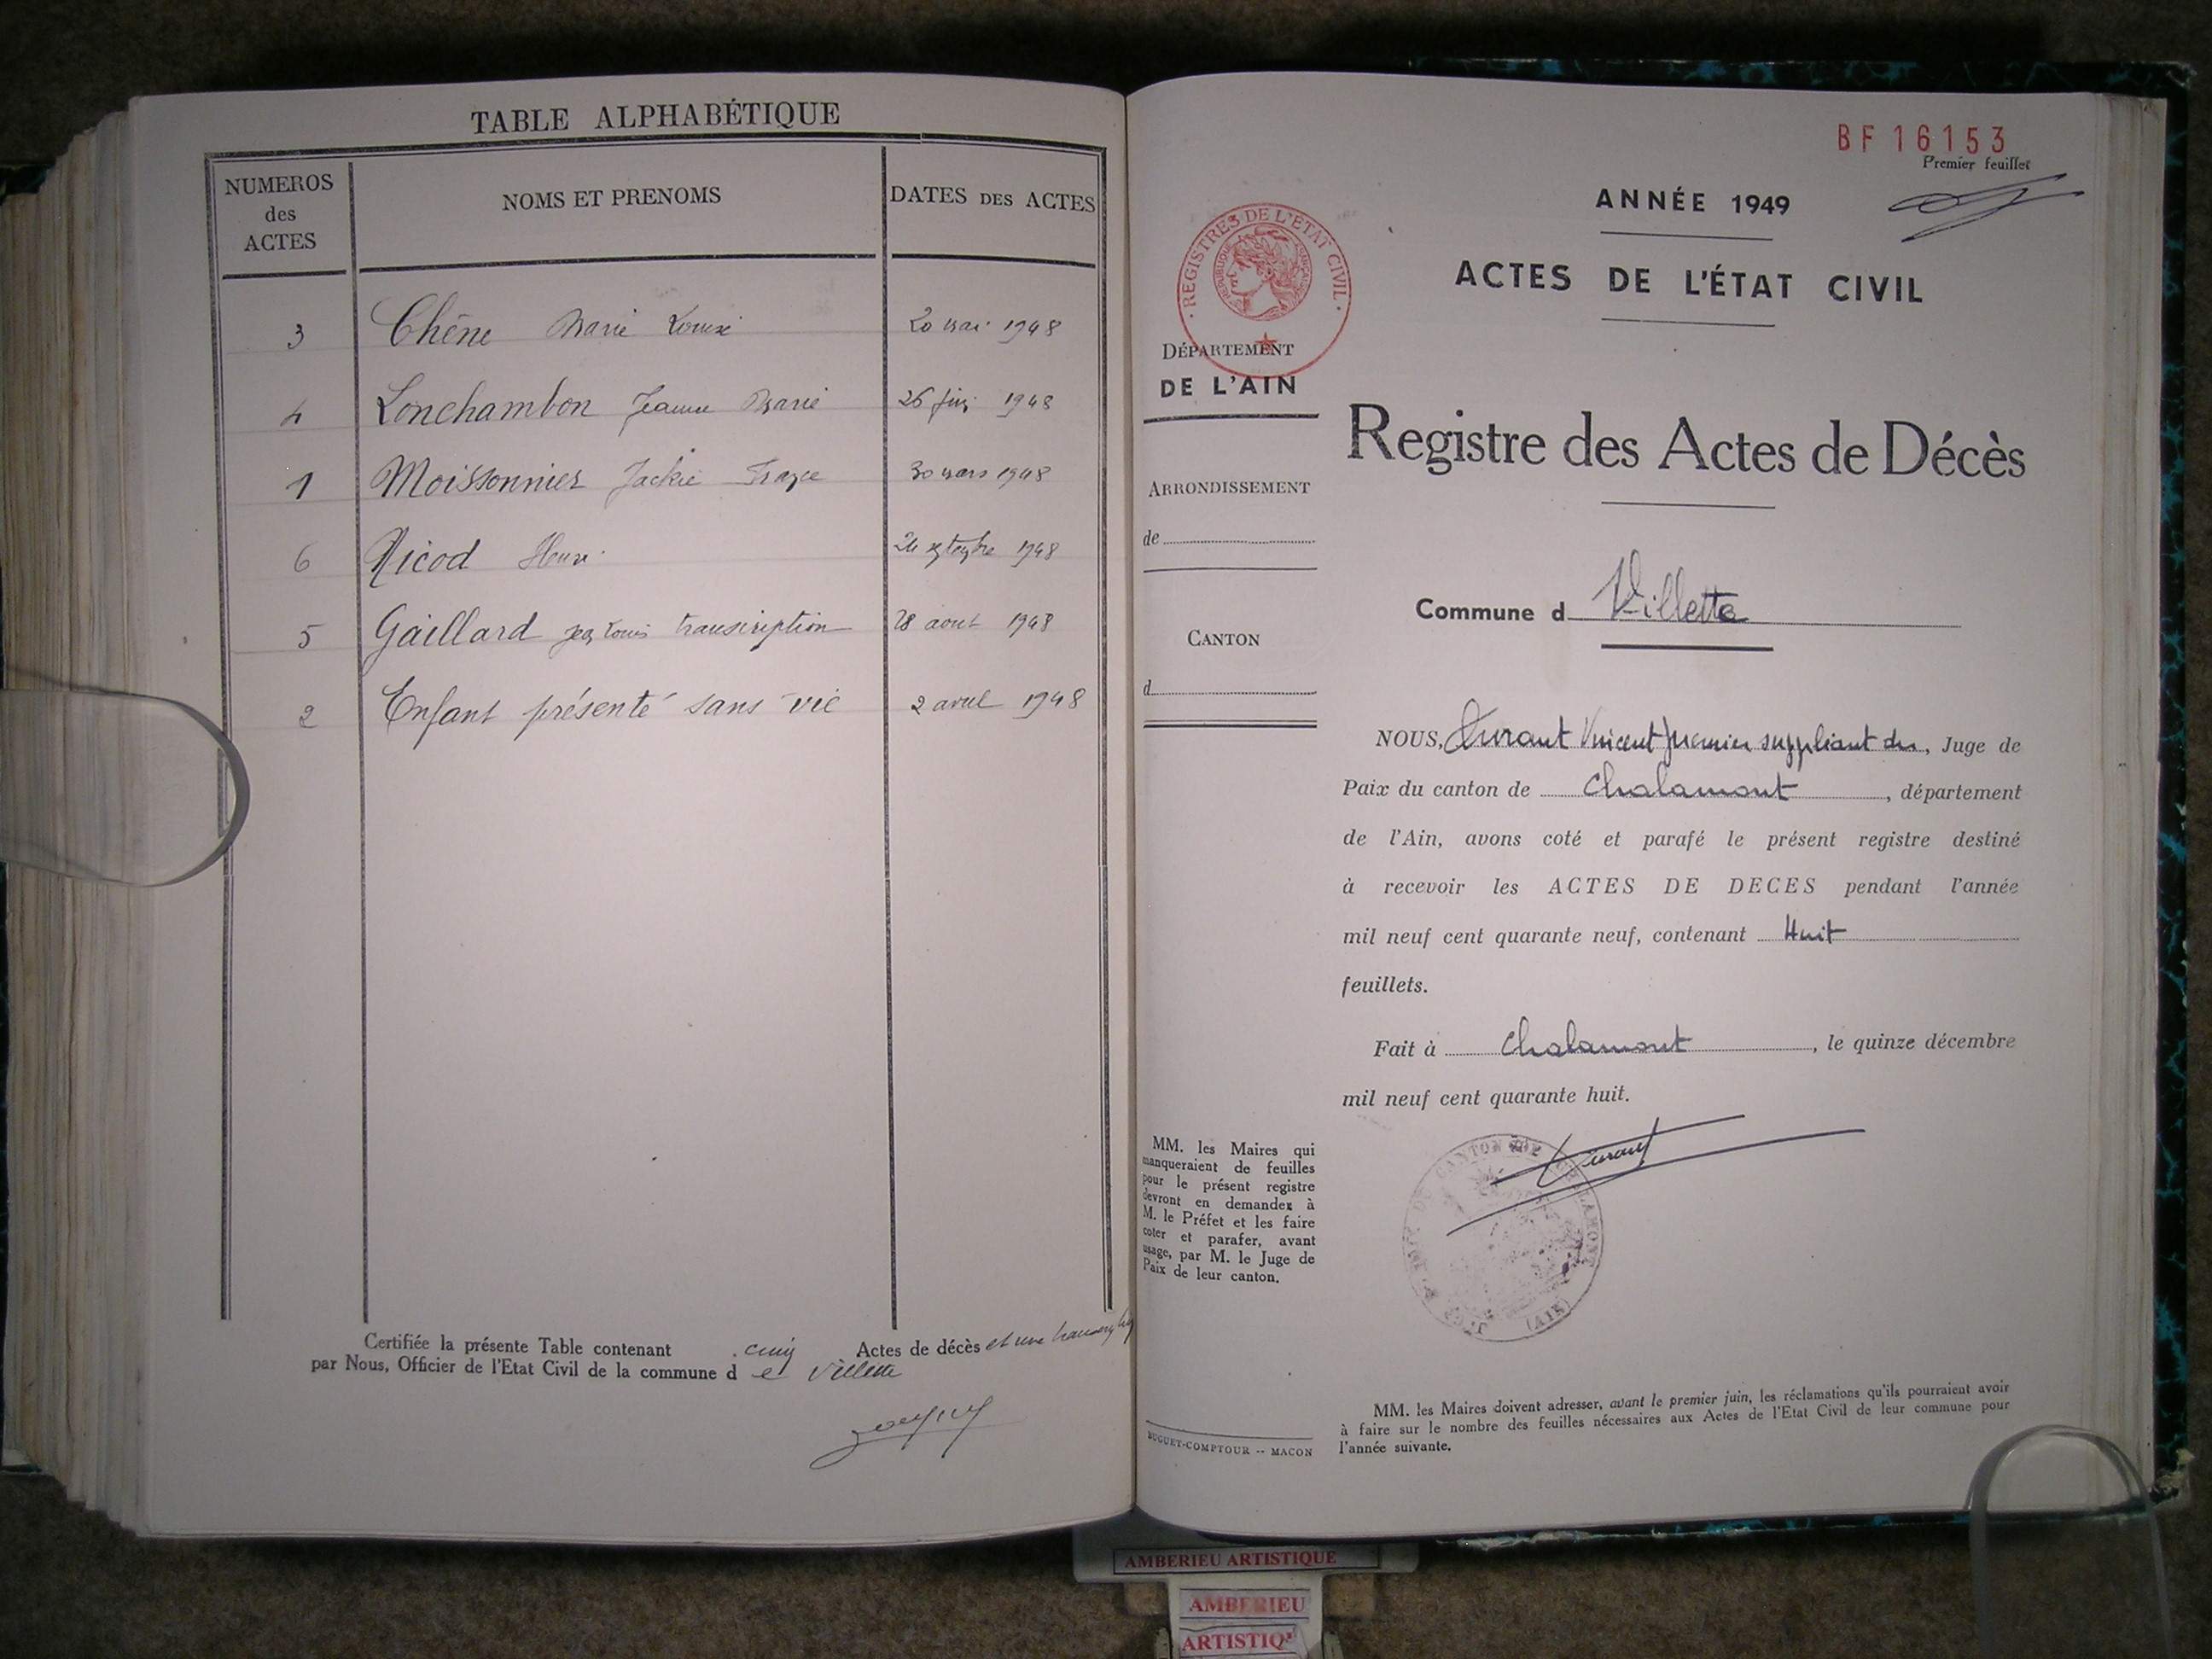 TABLE ALPHABÉTIQUE
NUMEROS
des
ACTES
NOMS ET PRENOMS
DATES DES ACTES
3 Chêne Marie Louise 20 mai 1948
4 Lonchambon Jeanne Marie 26 juin 1948
1 Moissonnier Jackie 30 mars 1948
6 Nicod Henri 1948
5 Gaillard Jean Louis transcription 28 aout 1948
2 Enfant présenté sans vie 2 avril 1948
Certifiée la présente Table contenant cinq Actes de décès et une
par Nous, Officier de l'Etat Civil de la commune d e Villette
BF 16153
Premier feuillet
ANNÉE 1949
ACTES DE L'ÉTAT CIVIL
REGISTRES DE L'ÉTAT CIVIL
RÉPUBLIQUE FRANÇAISE
DÉPARTEMENT
DE L'AIN
ARRONDISSEMENT
de
CANTON
d
Registre des Actes de Décès
Commune d Villette
NOUS, Durant Vincent premier suppliant du, Juge de
Paix du canton de Chalamont, département
de l'Ain, avons coté et parafé le présent registre destiné
à recevoir les ACTES DE DECES pendant l'année
mil neuf cent quarante neuf, contenant Huit
feuillets.
Fait à Chalamont, le quinze décembre
mil neuf cent quarante huit.
Durant
CANTON DE CHALAMONT
(AIN)
MM. les Maires qui
manqueraient de feuilles
pour le présent registre
devront en demander à
M. le Préfet et les faire
coter et parafer, avant
usage, par M. le Juge de
Paix de leur canton.
BUGUET-COMPTOUR -- MACON
MM. les Maires doivent adresser, avant le premier juin, les réclamations qu'ils pourraient avoir
à faire sur le nombre des feuilles nécessaires aux Actes de l'Etat Civil de leur commune pour
l'année suivante.
AMBERIEU ARTISTIQUE
AMBERIEU
ARTISTIQ